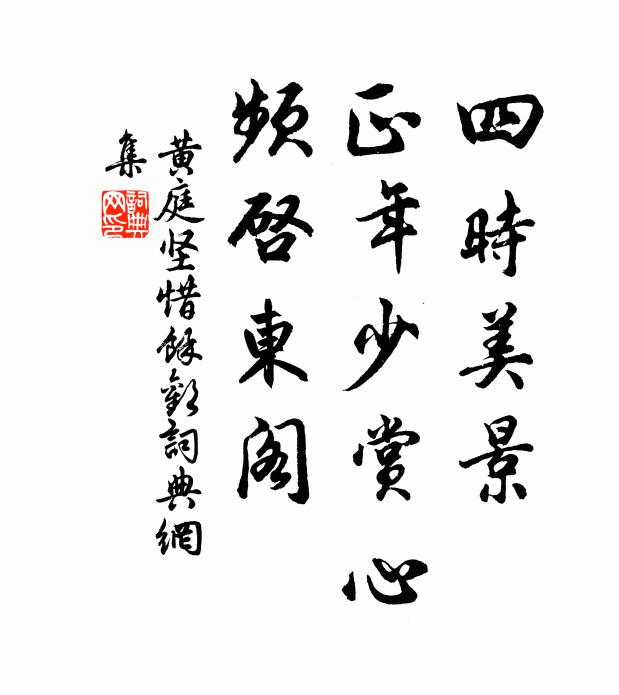 四時美景
正年少賞心
頻啓東閣
黄庭坚惜餘歡詞典網
集
詞典網印